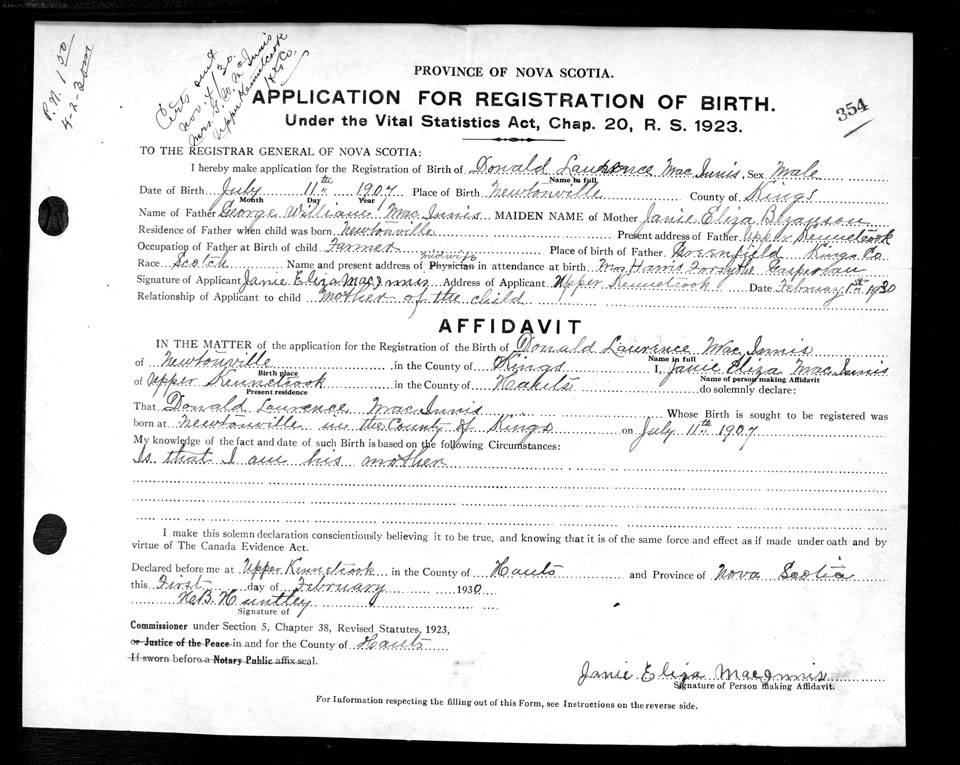 P.N. 1 50
4-2-30
Certs sent
Nov. 4/30.
Mrs. G. W. McInnis
Upper Kennetcook
Hts Co.
354
PROVINCE OF NOVA SCOTIA.
APPLICATION FOR REGISTRATION OF BIRTH.
Under the Vital Statistics Act, Chap. 20, R. S. 1923.
TO THE REGISTRAR GENERAL OF NOVA SCOTIA:
I hereby make application for the Registration of Birth of Donald Laurence MacInnis. Sex Male
Name in full
Date of Birth July 11th 1907 Place of Birth Newtonville County of Kings
Month Day Year
Name of Father George William MacInnis MAIDEN NAME of Mother Janie Eliza Bezanson
Residence of Father when child was born Newtonville Present address of Father Upper Kennetcook
Occupation of Father at Birth of child Farmer Place of birth of Father Greenfield Kings Co
midwife
Race Scotch Name and present address of Physician in attendance at birth Mrs Harris Forsythe Gaspereau
Signature of Applicant Janie Eliza MacInnis Address of Applicant Upper Kennetcook Date February 1st 1930
Relationship of Applicant to child Mother of the child
AFFIDAVIT
IN THE MATTER of the application for the Registration of the Birth of Donald Laurence MacInnis
Name in full
of Newtonville in the County of Kings I, Janie Eliza MacInnis
Birth place Name of person making Affidavit
of Upper Kennetcook in the County of Hants do solemnly declare:
Present residence
That Donald Laurence MacInnis Whose Birth is sought to be registered was
born at Newtonville in the County of Kings on July 11th 1907
My knowledge of the fact and date of such Birth is based on the following Circumstances:
Is that I am his mother
I make this solemn declaration conscientiously believing it to be true, and knowing that it is of the same force and effect as if made under oath and by
virtue of The Canada Evidence Act.
Declared before me at Upper Kennetcook in the County of Hants and Province of Nova Scotia
this First day of February 1930
H.B. Huntley
Signature of
Commissioner under Section 5, Chapter 38, Revised Statutes, 1923,
or Justice of the Peace in and for the County of Hants
If sworn before a Notary Public affix seal.
Janie Eliza MacInnis
Signature of Person making Affidavit.
For Information respecting the filling out of this Form, see Instructions on the reverse side.